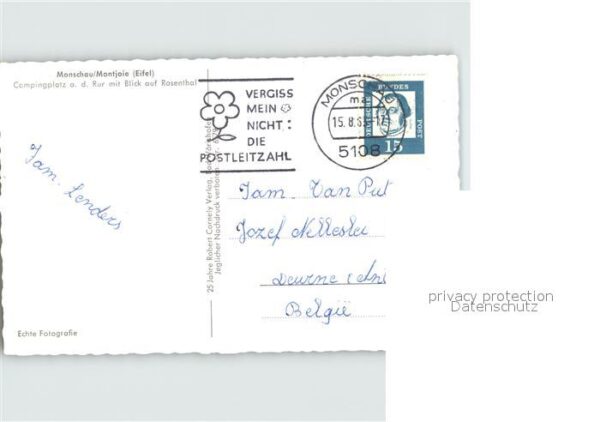 Monschau/Montjoie (Eifel)
Campingplatz a. d. Rur mit Blick auf Rosenthal
VERGISS
MEIN
NICHT:
DIE
POSTLEITZAHL
MONSCHAU
15. 8. 63
5108
DEUTSCHE
BUNDES
POST
15
Fam. Lenders
25 Jahre Robert Cornely Verlag
Jeglicher Nachdruck verboten
Fam. Van Put
Jozef
Deurne
België
Echte Fotografie
privacy protection
Datenschutz